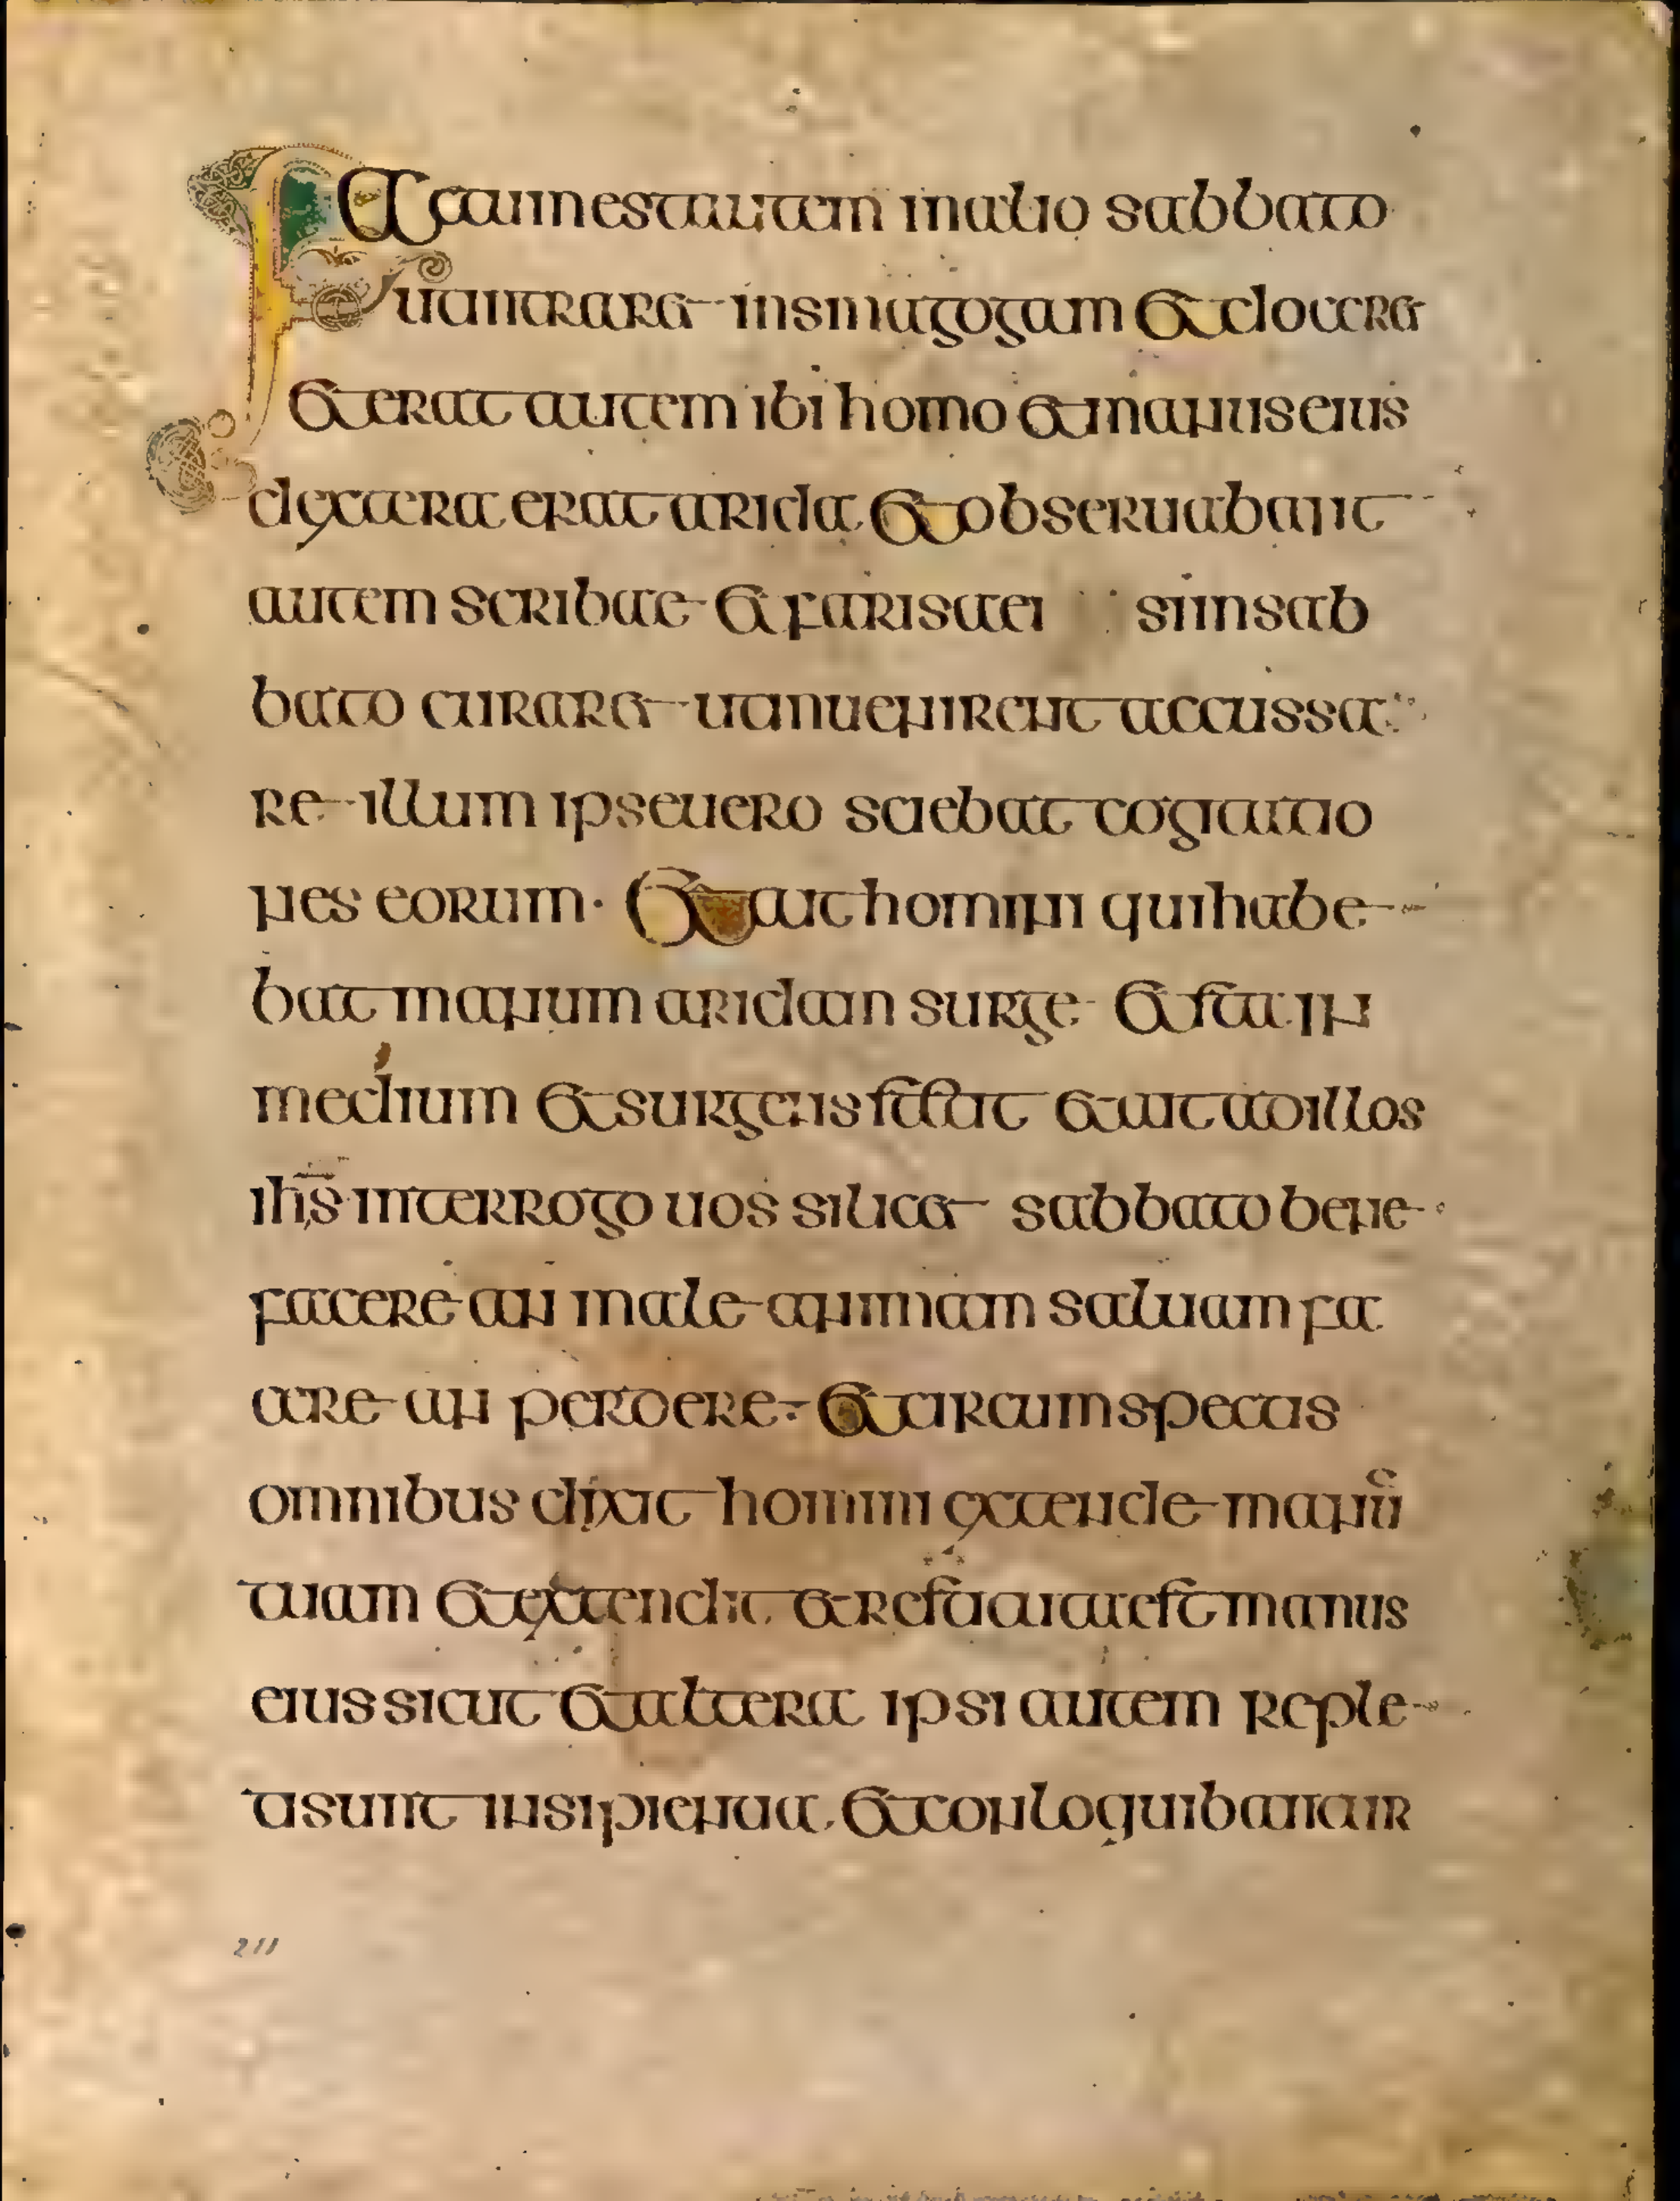 Factum est autem in alio sabbato
ut intraret in sinagogam et doceret
et erat autem ibi homo et manus eius
dextera erat arida et obseruabant
autem scribae et farisaei si in sab
bato curaret ut inuenirent accussa
re illum ipse uero sciebat cogitatio
nes eorum · Et ait homini qui habe
bat manum aridam surge et sta in
medium et surgens stetit et ait ad illos
ihs interrogo uos si licet sabbato bene
facere an male animam saluam fa
cere an perdere · et circumspectis
omnibus dixit homini extende manū
tuam et extendit et restituta est manus
eius sicut et altera ipsi autem reple
ti sunt insipientia et conloquibantur
211